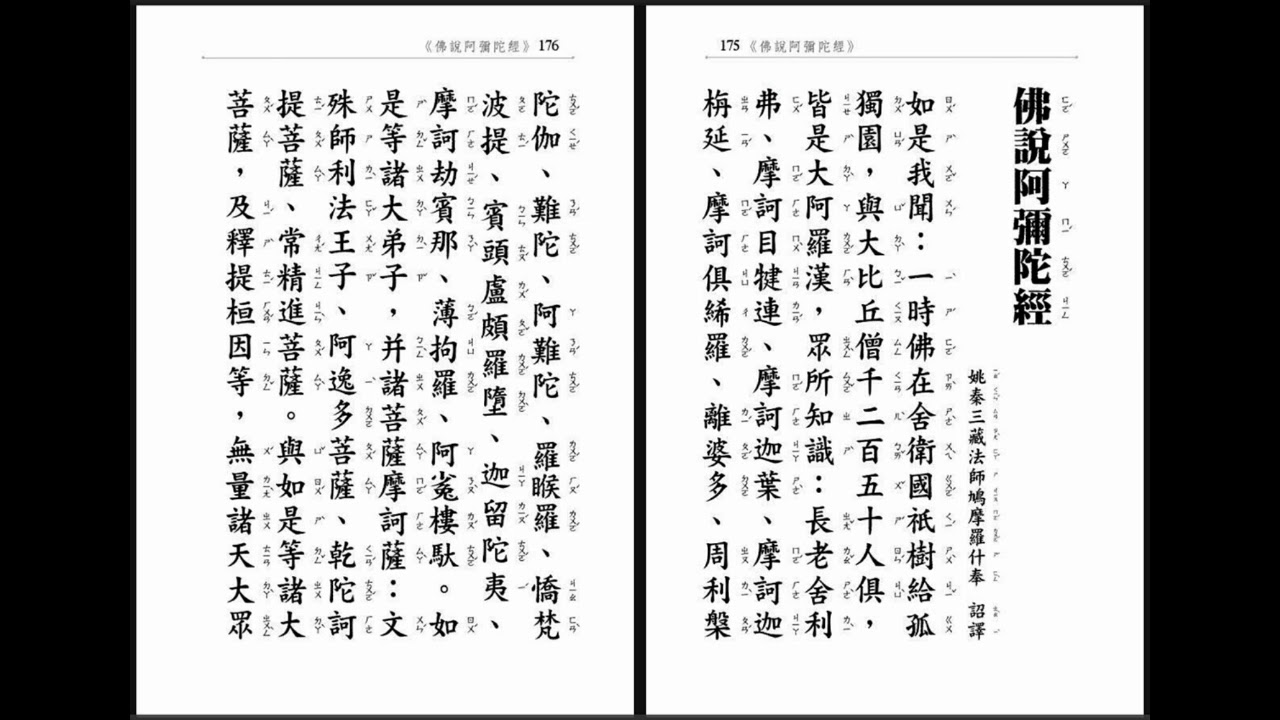 175《佛說阿彌陀經》
佛說阿彌陀經
姚秦三藏法師鳩摩羅什奉 詔譯
如是我聞：一時佛在舍衛國祇樹給孤
獨園，與大比丘僧千二百五十人俱，
皆是大阿羅漢，眾所知識：長老舍利
弗、摩訶目犍連、摩訶迦葉、摩訶迦
栴延、摩訶俱絺羅、離婆多、周利槃
《佛說阿彌陀經》176
陀伽、難陀、阿難陀、羅睺羅、憍梵
波提、賓頭盧頗羅墮、迦留陀夷、
摩訶劫賓那、薄拘羅、阿㝹樓馱。如
是等諸大弟子，并諸菩薩摩訶薩：文
殊師利法王子、阿逸多菩薩、乾陀訶
提菩薩、常精進菩薩。與如是等諸大
菩薩，及釋提桓因等，無量諸天大眾